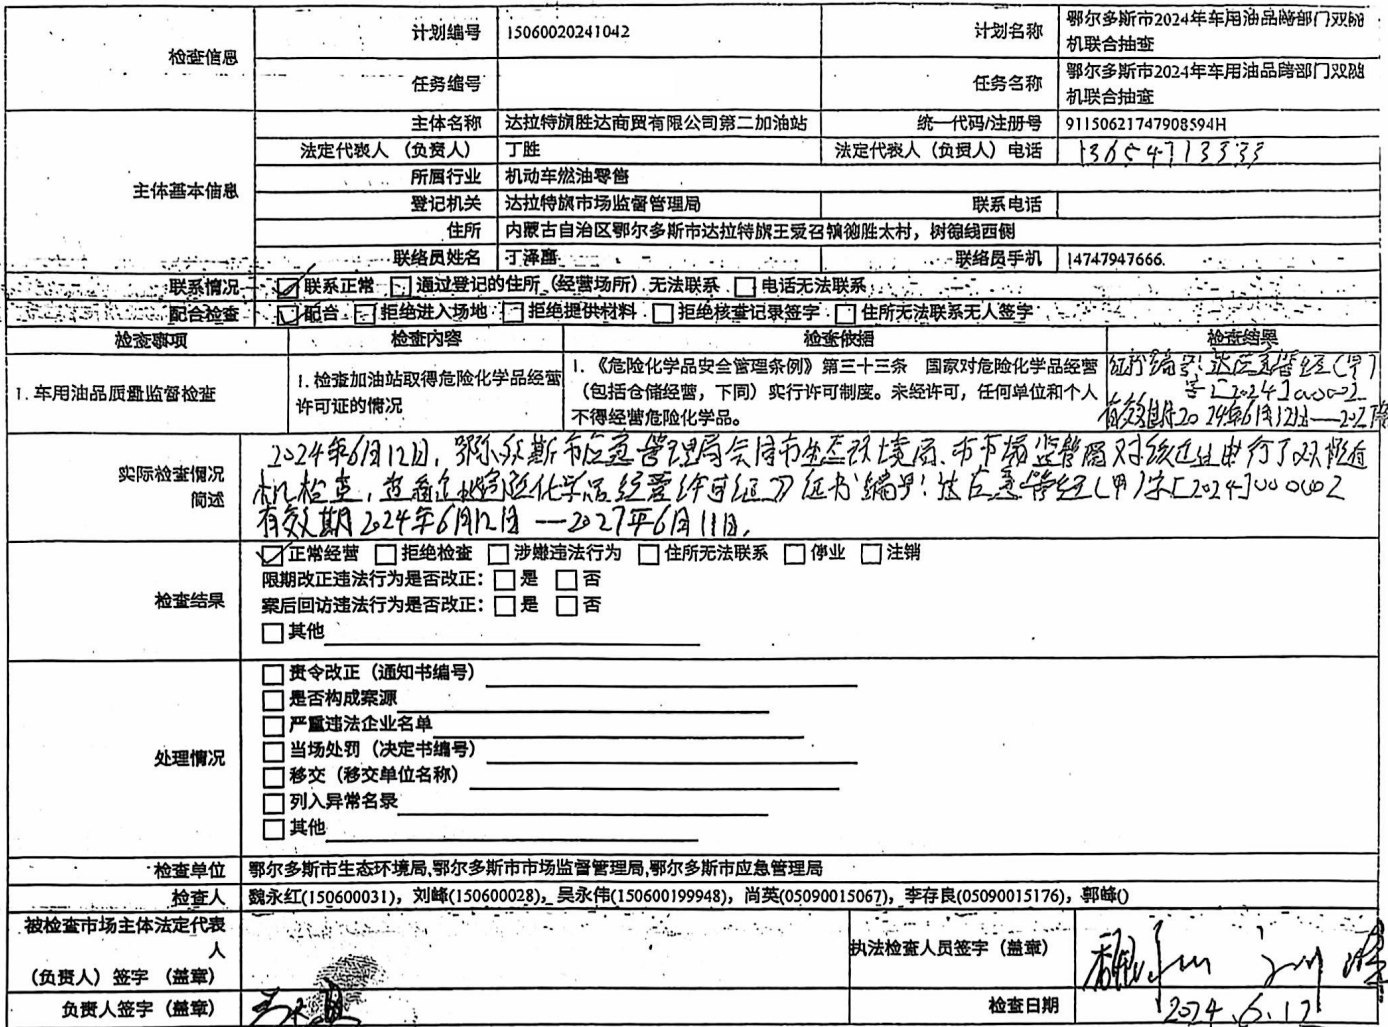 检查信息
计划编号 15060020241042 计划名称 鄂尔多斯市2024年车用油品跨部门双随
机联合抽查
任务编号 任务名称 鄂尔多斯市2024年车用油品跨部门双随
机联合抽查
主体基本信息
主体名称 达拉特旗胜达商贸有限公司第二加油站 统一代码/注册号 91150621747908594H
法定代表人（负责人） 丁胜 法定代表人（负责人）电话 13654713333
所属行业 机动车燃油零售
登记机关 达拉特旗市场监督管理局 联系电话
住所 内蒙古自治区鄂尔多斯市达拉特旗王爱召镇德胜太村，树德线西侧
联络员姓名 丁泽 联络员手机 14747947666
联系情况 联系正常 通过登记的住所（经营场所）无法联系 电话无法联系
配合检查 配合 拒绝进入场地 拒绝提供材料 拒绝核查记录签字 住所无法联系无人签字
检查事项 检查内容 检查依据 检查结果
1. 车用油品质量监督检查
1. 检查加油站取得危险化学品经营
许可证的情况
1. 《危险化学品安全管理条例》第三十三条 国家对危险化学品经营
（包括仓储经营，下同）实行许可制度。未经许可，任何单位和个人
不得经营危险化学品。
证书编号：达应急管经(甲)
字[2024]000002
有效期2024年6月12日—2027
实际检查情况
简述
2024年6月12日，鄂尔多斯市应急管理局会同市生态环境局、市市场监管局对该企业进行了双随
机检查，查看企业《危险化学品经营许可证》证书编号：达应急管经(甲)字[2024]000002
有效期2024年6月12日—2027年6月11日。
检查结果
正常经营 拒绝检查 涉嫌违法行为 住所无法联系 停业 注销
限期改正违法行为是否改正： 是 否
案后回访违法行为是否改正： 是 否
其他
处理情况
责令改正（通知书编号）
是否构成案源
严重违法企业名单
当场处罚（决定书编号）
移交（移交单位名称）
列入异常名录
其他
检查单位 鄂尔多斯市生态环境局,鄂尔多斯市市场监督管理局,鄂尔多斯市应急管理局
检查人 魏永红(150600031)，刘峰(150600028)，吴永伟(150600199948)，尚英(05090015067)，李存良(05090015176)，郭峰()
被检查市场主体法定代表
人
（负责人）签字 （盖章）
执法检查人员签字（盖章）
负责人签字（盖章）
检查日期 2024.6.12